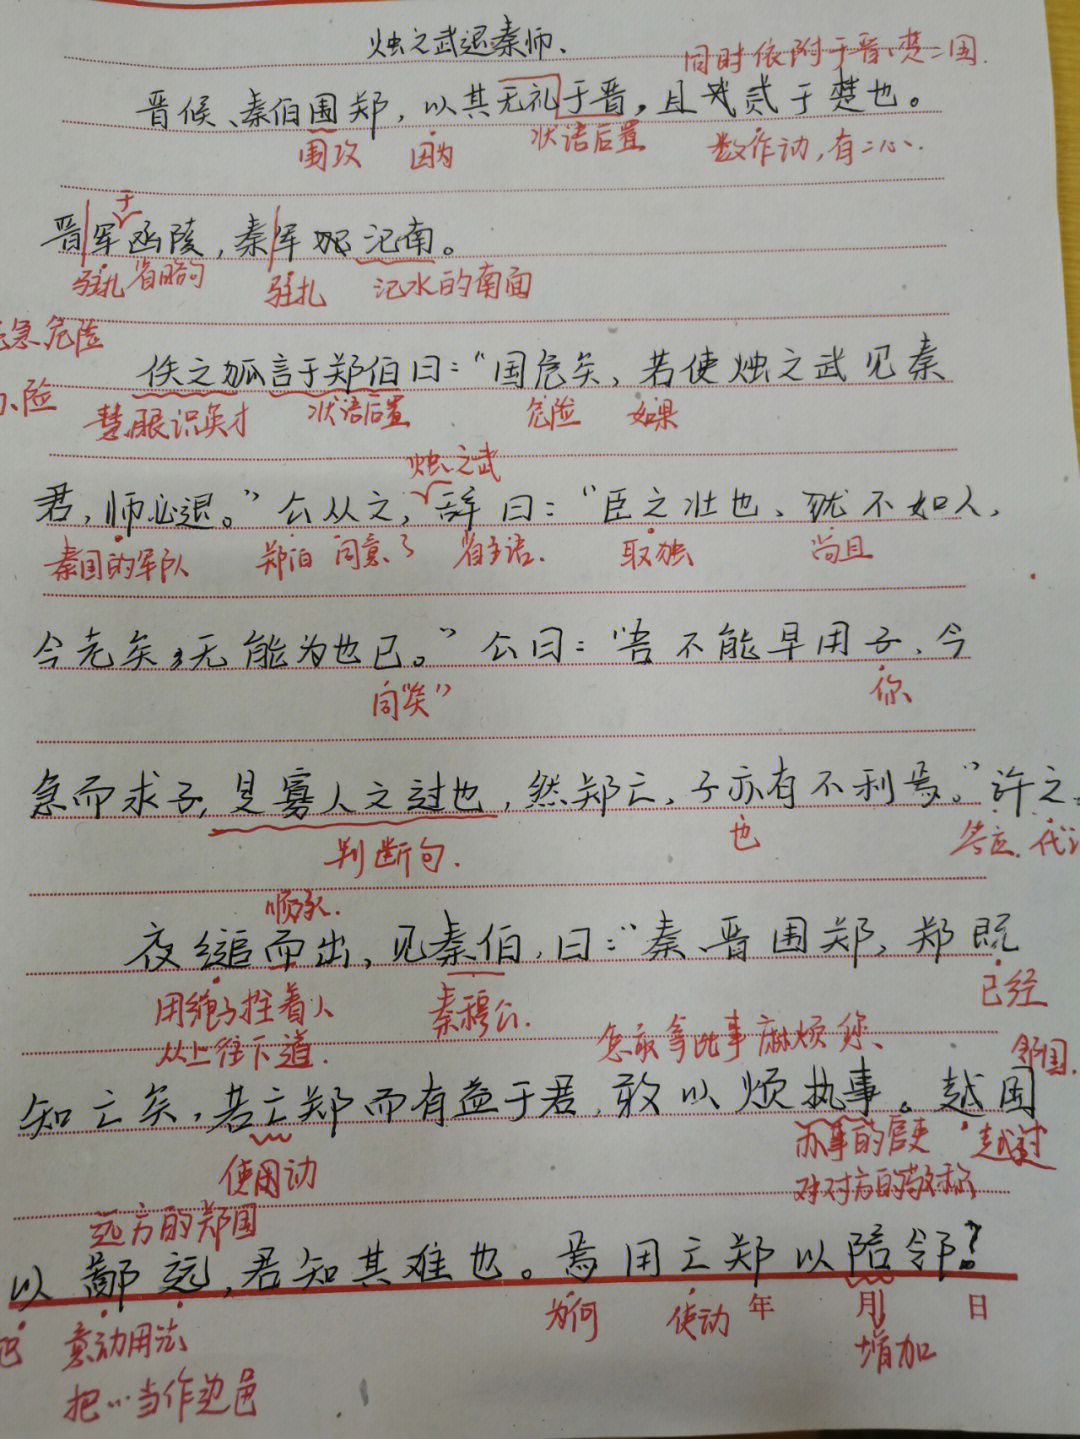 烛之武退秦师.
同时依附于晋、楚二国.
晋候、秦伯围郑，以其无礼于晋，且贰于楚也。
围攻 因为 状语后置 数作动，有二心.
于
晋军函陵，秦军氾南。
驻扎 省略句 驻扎 氾水的南面
急危险
佚之狐言于郑伯曰：“国危矣，若使烛之武见秦
险 慧眼识英才 状语后置 危险 如果
烛之武
君，师必退。”公从之，辞曰：“臣之壮也、犹不如人，
秦国的军队 郑伯 同意了 省主语. 取独 尚且
今老矣，无能为也已。”公曰：“吾不能早用子、今
同“矣” 你
急而求子，是寡人之过也，然郑亡、子亦有不利焉。”许之。
判断句. 也 答应.
顺承.
夜缒而出，见秦伯，曰：“秦、晋围郑，郑既
用绳子拴着人 秦穆公. 已经
从上往下道. 怎敢拿此事麻烦您、 邻国.
知亡矣，若亡郑而有益于君，敢以烦执事。越国
使用动 办事的官吏 越过
远方的郑国 对对方的敬称
以鄙远，君知其难也。焉用亡郑以陪邻？
意动用法 为何 使动 年 月 日
把…当作边邑 增加